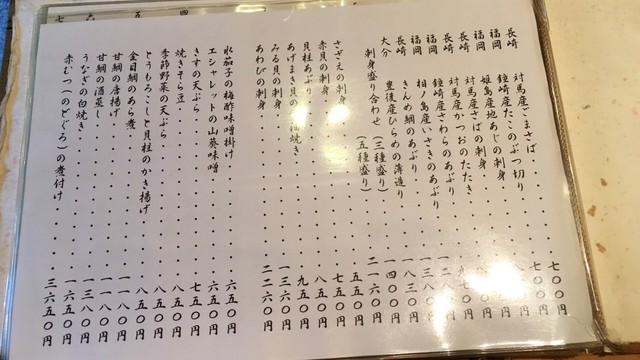 長崎 対馬産ごまさば・・・・七〇〇円
福岡 鐘崎産たこのぶつ切り・・・七〇〇円
福岡 姫島産地あじの刺身
長崎 対馬産さばの刺身
長崎 対馬産かつおのたたき
福岡 鐘崎産さわらのあぶり
福岡 相ノ島産いさきのあぶり
長崎 きんめ鯛のあぶり・・・一八三〇円
大分 豊後産ひらめの薄造り・・・一四〇〇円
刺身盛り合わせ(三種盛り)・・・二一六〇円
(五種盛り)
さざえの刺身・・・五五〇円
赤貝の刺身・・・七五〇円
貝柱あぶり・・・八五〇円
あげまき貝の 焼き・・・九五〇円
みる貝の刺身・・・一三六〇円
あわびの刺身・・・二二六〇円
水茄子の梅酢味噌掛け・・・六五〇円
エシャレットの山葵味噌・・・六五〇円
きすの天ぷら・・・八五〇円
焼きそら豆・・・七五〇円
季節野菜の天ぷら・・・八五〇円
とうもろこしと貝柱のかき揚げ・・・八五〇円
金目鯛のあら煮・・・八五〇円
甘鯛の唐揚げ・・・一一八〇円
甘鯛の酒蒸し・・・一一八〇円
うなぎの白焼き・・・一三八〇円
赤むつ(のどぐろ)の煮付け・・・三六五〇円